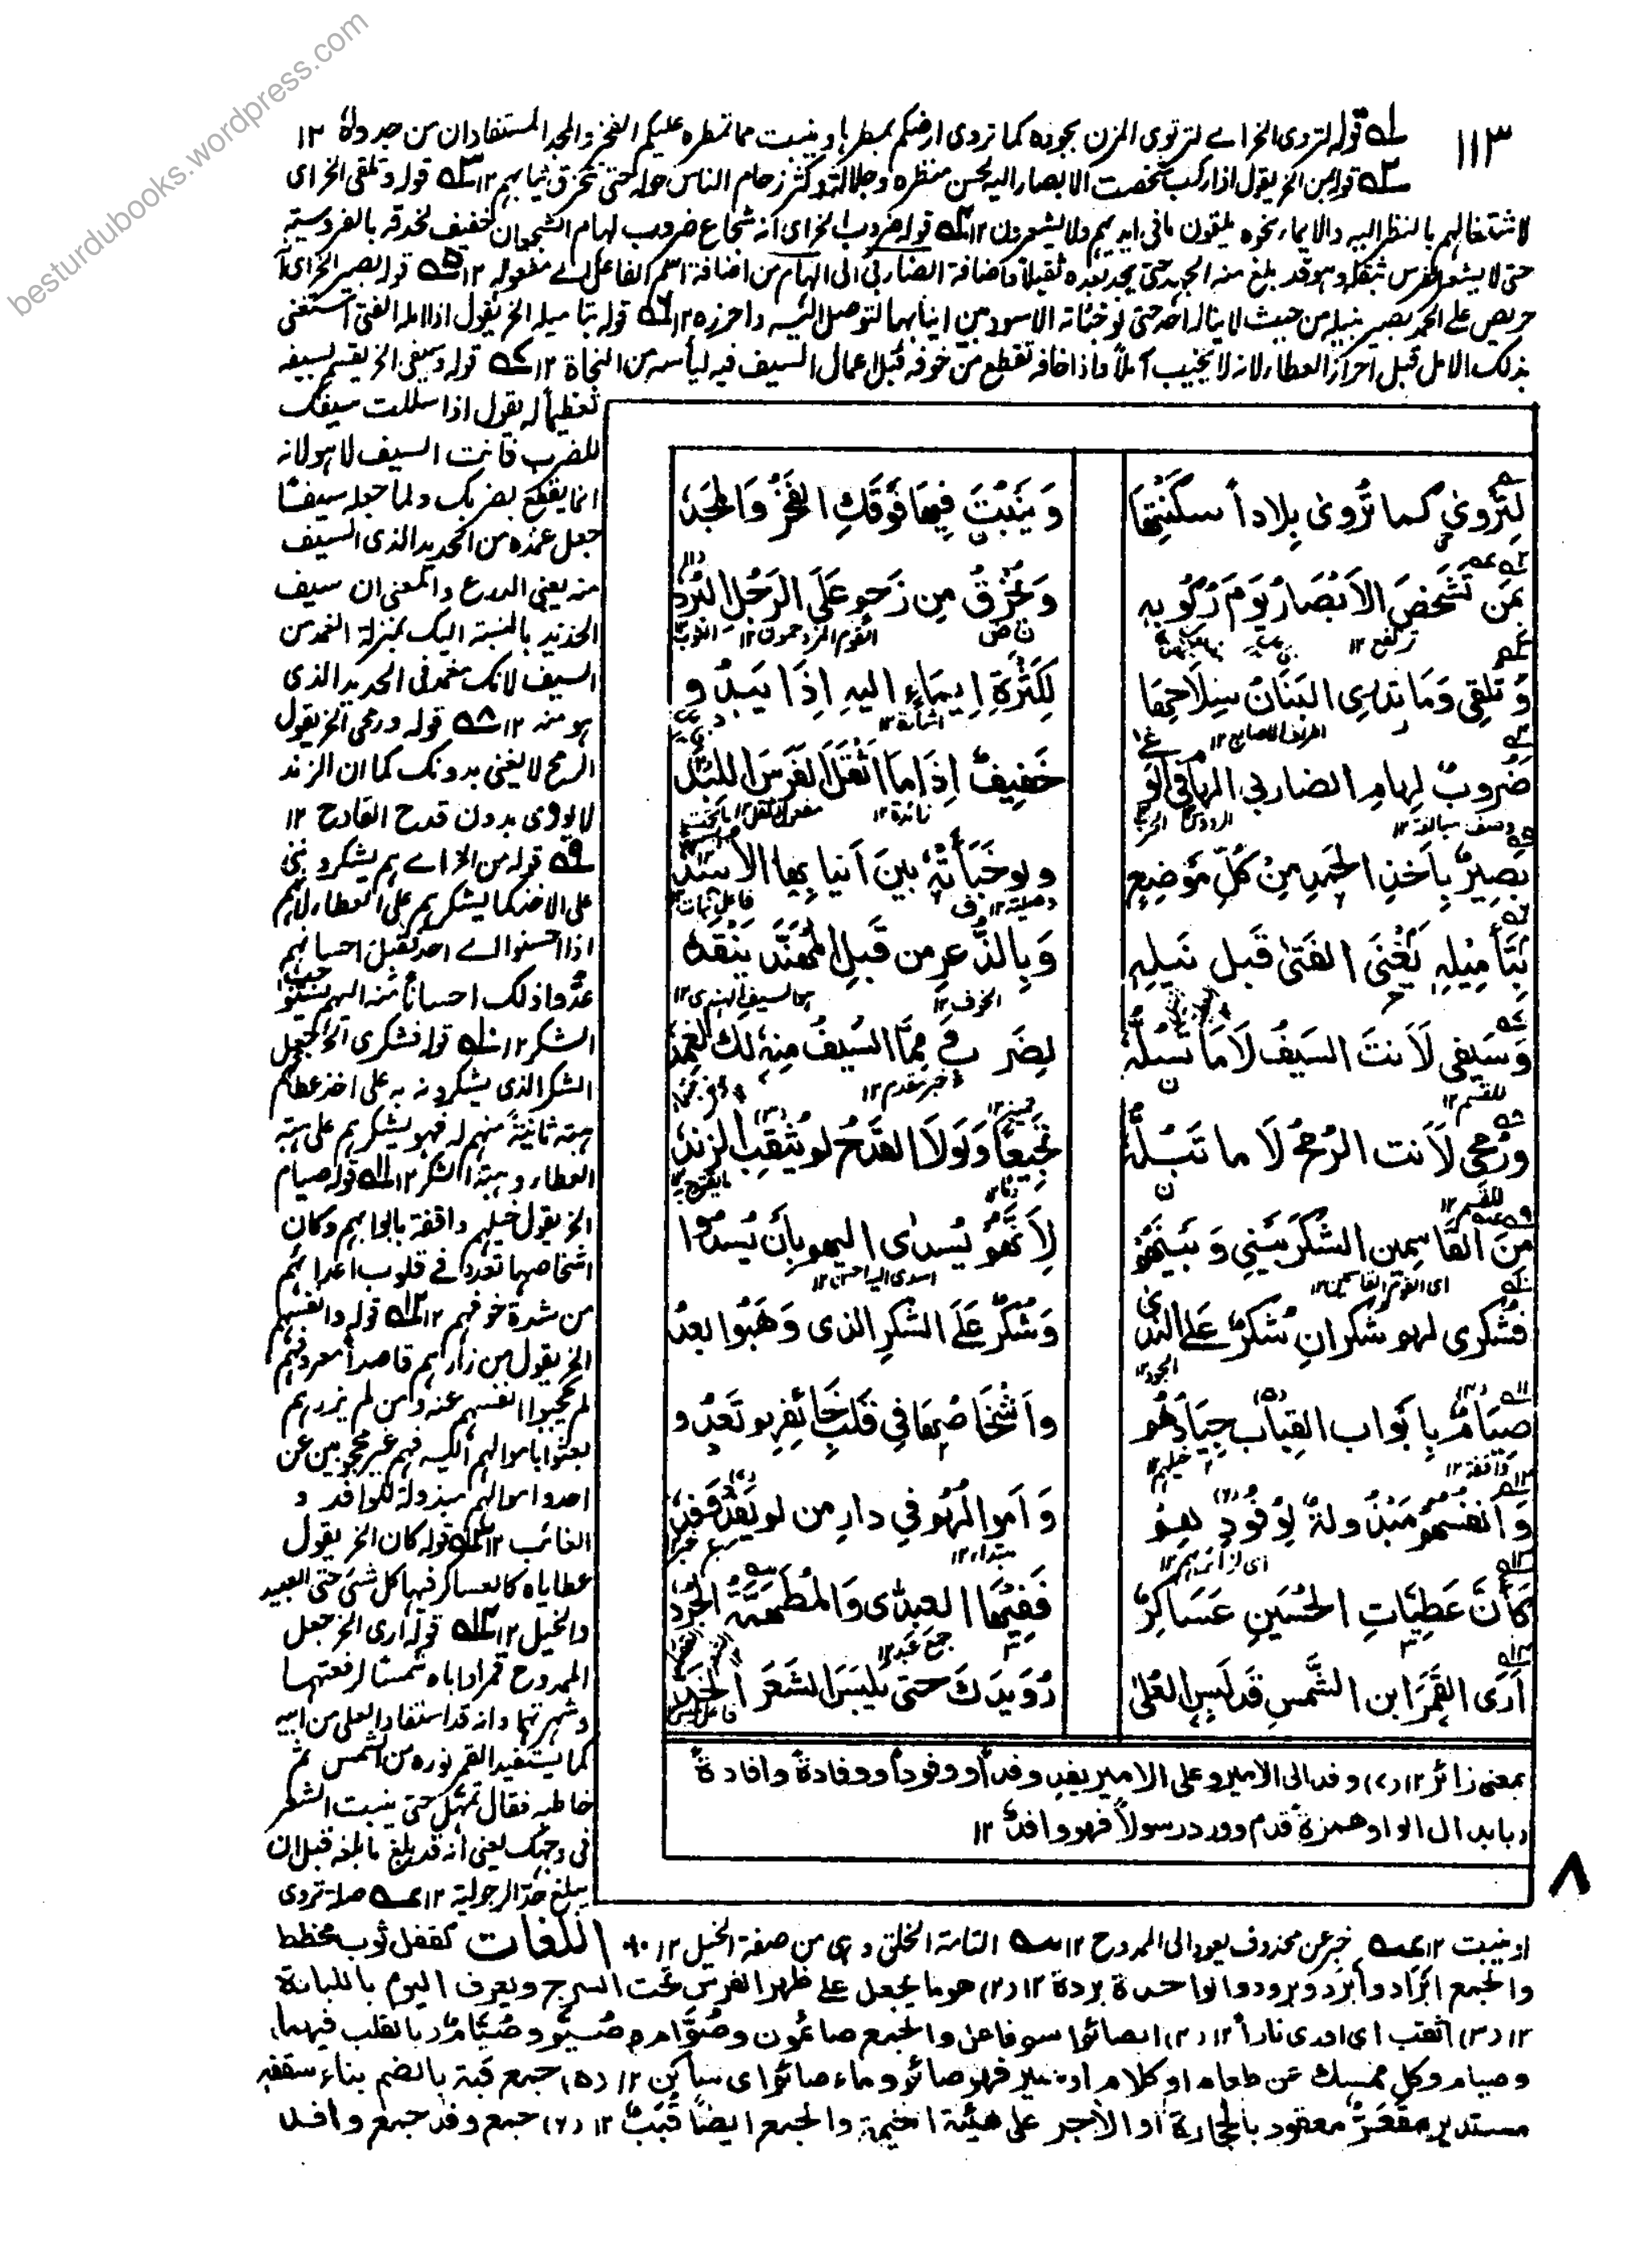 besturdubooks.wordpress.com
١١٣
١ قوله لتروي الخ اے لترتوی المزن بجوده کما تروی ارضکم بمطرها وینبت مما تمطره علیکم الفخر والمجد المستفادان من جدواه ١٢
٢ قوله بمن الخ یقول اذا رکب شخصت الابصار الیه لحسن منظره وجلالته وکثر زحام الناس حوله حتی تخرق ثیابهم ١٢ ٣ قوله وتلقی الخ ای
لاشتغالهم بالنظر الیه والایماء نحوه یلقون مافی ایدیهم ولا یشعرون ١٢ ٤ قوله ضروب الخ ای انه شجاع ضروب لهام الشجعان خفیف لحذقه بالفروسیة
حتی لا یشعر الفرس بثقله وهو قد بلغ منه الجهد حتی یجد لبده ثقیلا واضافة الضاربی الی الهام من اضافة اسم الفاعل اے مفعوله ١٢ ٥ قوله بصیر الخ ای
حریص علی الحمد بصیر بنیله من حیث لا یناله احد حتی لو خبأته الاسود بین انیابها لتوصل الیه واحرزه ١٢ ٦ قوله بتأمیله الخ یقول اذا امله الفتی استغنی
بذلک الامل قبل احراز العطاء لانه لا یخیب آملا واذا خافه تقطع من خوفه قبل اعمال السیف فیه لیأسه من النجاة ١٢ ٧ قوله وسیفی الخ یقسم بسیفه
تعظیما له یقول اذا سللت سیفک
للضرب فانت السیف لا هو لانه
انما یقطع بضربک ولما جعله سیفا
جعل غمده من الحدید الذی السیف
منه یعنی الدرع والمعنی ان سیف
الحدید بالنسبة الیک بمنزلة الغمد من
السیف لانک مغمد فی الحدید الذی
هو منه ١٢ ٨ قوله ورمحی الخ یقول
الرمح لا یغنی بدونک کما ان الزند
لا یوری بدون قدح القادح ١٢
٩ قوله من الخ اے هم یشکروننی
علی الاخذ کما یشکرهم علی العطاء لانهم
اذا احسنوا الے احد تقبل احسانهم
عدوا ذلک احسانا منه الیهم
الشکر ١٢ ١٠ قوله فشکری الخ جعل
الشکر الذی یشکرونه به علی اخذ عطائهم
هبة ثانیة منهم له فهو یشکرهم علی هبة
العطاء وهبة الشکر ١٢ ١١ قوله صیام
الخ یقول خیلهم واقفة بابوابهم وکان
اشخاصها تعدو فے قلوب اعدائهم
من شدة خوفهم ١٢ ١٢ قوله وانفسهم
الخ یقول من زارهم قاصدا معروفهم
لم یحجبوا انفسهم عنه ومن لم یزرهم
بعثوا باموالهم الیه فهم غیر محجوبین عن
احد واموالهم مبذولة للوافد و
الغائب ١٢ ١٣ قوله کان الخ یقول
عطایاه کالعساکر فیها کل شئ حتی العبید
والخیل ١٢ ١٤ قوله أری الخ جعل
الممدوح قمرا واباه شمسا لرفعتهما
وشهرتهما وانه قد استفاد العلی من ابیه
کما یستفید القمر نوره من الشمس ثم
خاطبه فقال تمهل حتی ینبت الشعر
فی وجهک یعنی انه قد بلغ ما بلغه قبل ان
یبلغ حد الرجولیة ١٢ صلة تروی
لِتُرْوِیْ کَمَا تُرْوِیْ بِلَاداً سَکَنْتِهَا وَیَنْبُتَ فِیْهَا فَوْقَكِ الْفَخْرُ وَالْمَجْدُ
بِمَنْ تَشْخَصُ الْاَبْصَارُ یَوْمَ رُکُوْبِهٖ وَیُخْرَقُ مِنْ زَحْمٍ عَلَی الرَّجُلِ الْبُرْدُ
ترتفع ١٢ القوم المزدحمون ١٢
وَتُلْقِیْ وَمَا تَدْرِی الْبَنَانُ سِلَاحَهَا لِکَثْرَةِ اِیْمَاءٍ اِلَیْهِ اِذَا یَبْدُوْ
اطراف الاصابع ١٢ اشارة ١٢
ضَرُوْبٌ لِهَامِ الضَّارِبِی الْهَامِ فِی الْوَغٰی خَفِیْفٌ اِذَا مَا اَثْقَلَ الْفَرَسَ اللِّبْدُ
وصف مبالغة ١٢ الرؤوس الحرب زائدة ١٢
بَصِیْرٌ بِاَخْذِ الْحَمْدِ مِنْ کُلِّ مَوْضِعٍ وَلَوْ خَبَأَتْهُ بَیْنَ اَنْیَابِهَا الْاُسْدُ
وصلیة ١٢
بِتَأْمِیْلِهٖ یَغْنَی الْفَتٰی قَبْلَ نَیْلِهٖ وَبِالذُّعْرِ مِنْ قَبْلِ الْمُهَنَّدِ یَنْقَدُّ
الخوف ١٢ السیف الهندی ١٢
وَسَیْفِیْ لَاَنْتَ السَّیْفُ لَا مَا تَسُلُّهٗ لِضَرْبٍ وَمِمَّا السَّیْفُ مِنْهُ لَكَ الْغِمْدُ
للقسم ١٢ خبر مقدم ١٢
وَرُمْحِیْ لَاَنْتَ الرُّمْحُ لَا مَا تَبُلُّهٗ نَجِیْعًا وَلَوْلَا الْقَدْحُ لَمْ یُثْقِبِ الزَّنْدُ
للقسم ١٢
مِنَ الْقَاسِمِیْنَ الشُّکْرَ بَیْنِیْ وَبَیْنَهُمْ لِاَنَّهُمْ یُسْدٰی اِلَیْهِمْ بِاَنْ یُسْدُوْا
ای القوم القاسمین ١٢ اسدی الیه احسن ١٢
فَشُکْرِیْ لَهُمْ شُکْرَانِ شُکْرٌ عَلَی النَّدٰی وَشُکْرٌ عَلَی الشُّکْرِ الَّذِیْ وَهَبُوْا بَعْدُ
الجود ١٢
صِیَامٌ بِاَبْوَابِ الْقِبَابِ جِیَادُهُمْ وَاَشْخَاصُهَا فِیْ قَلْبِ خَائِفِهِمْ تَعْدُوْ
واقفة ١٢ خیلهم ١٢
وَاَنْفُسُهُمْ مَبْذُوْلَةٌ لِوُفُوْدِهِمْ وَاَمْوَالُهُمْ فِیْ دَارِ مَنْ لَمْ یَفِدْ وَفْدُ
ای لزائریهم ١٢ مبتداء ١٢ خبر
کَاَنَّ عَطِیَّاتِ الْحُسَیْنِ عَسَاکِرٌ فَفِیْهَا الْعِبِدّٰی وَالْمُطَهَّمَةُ الْجُرْدُ
جمع عبد ١٢
اَرَی الْقَمَرَ ابْنَ الشَّمْسِ قَدْ لَبِسَ الْعُلٰی رُوَیْدَكَ حَتّٰی یَلْبَسَ الشَّعَرَ الْخَدُّ
بمعنی زائر ١٢ (٧) وفد الی الامیر وعلی الامیر یفد وفداً ووفوداً ووفادةً وافادةً
(بابدال الواو همزة) قدم وورد رسولاً فهو وافدٌ ١٢
٨
او ینبت ١٢ خبر عن محذوف یعود الی الممدوح ١٢ التامة الخلق وهی من صفة الخیل ١٢ اللغات کقفل ثوب مخطط
والجمع ابراد وأبرُد وبرود والواحدة بردة ١٢ (٢) هو ما یجعل علی ظهر الفرس تحت السرج ویعرف الیوم باللبادة
١٢ (٣) اثقب ای اوری ناراً ١٢ (٤) الصائم اسم فاعل والجمع صائمون وصُوَّام وصُیَّم وصُیَّام (بالقلب فیهما)
وصیام وکل ممسك عن طعام او کلام او سیر فهو صائم وماء صائم ای ساکن ١٢ (٥) جمع قبة بالضم بناء سقفه
مستدیر مقعّرٌ معقود بالحجارة او الآجر علی هیئة الخیمة والجمع ایضاً قُبَبٌ ١٢ (٦) جمع وفد جمع وافد